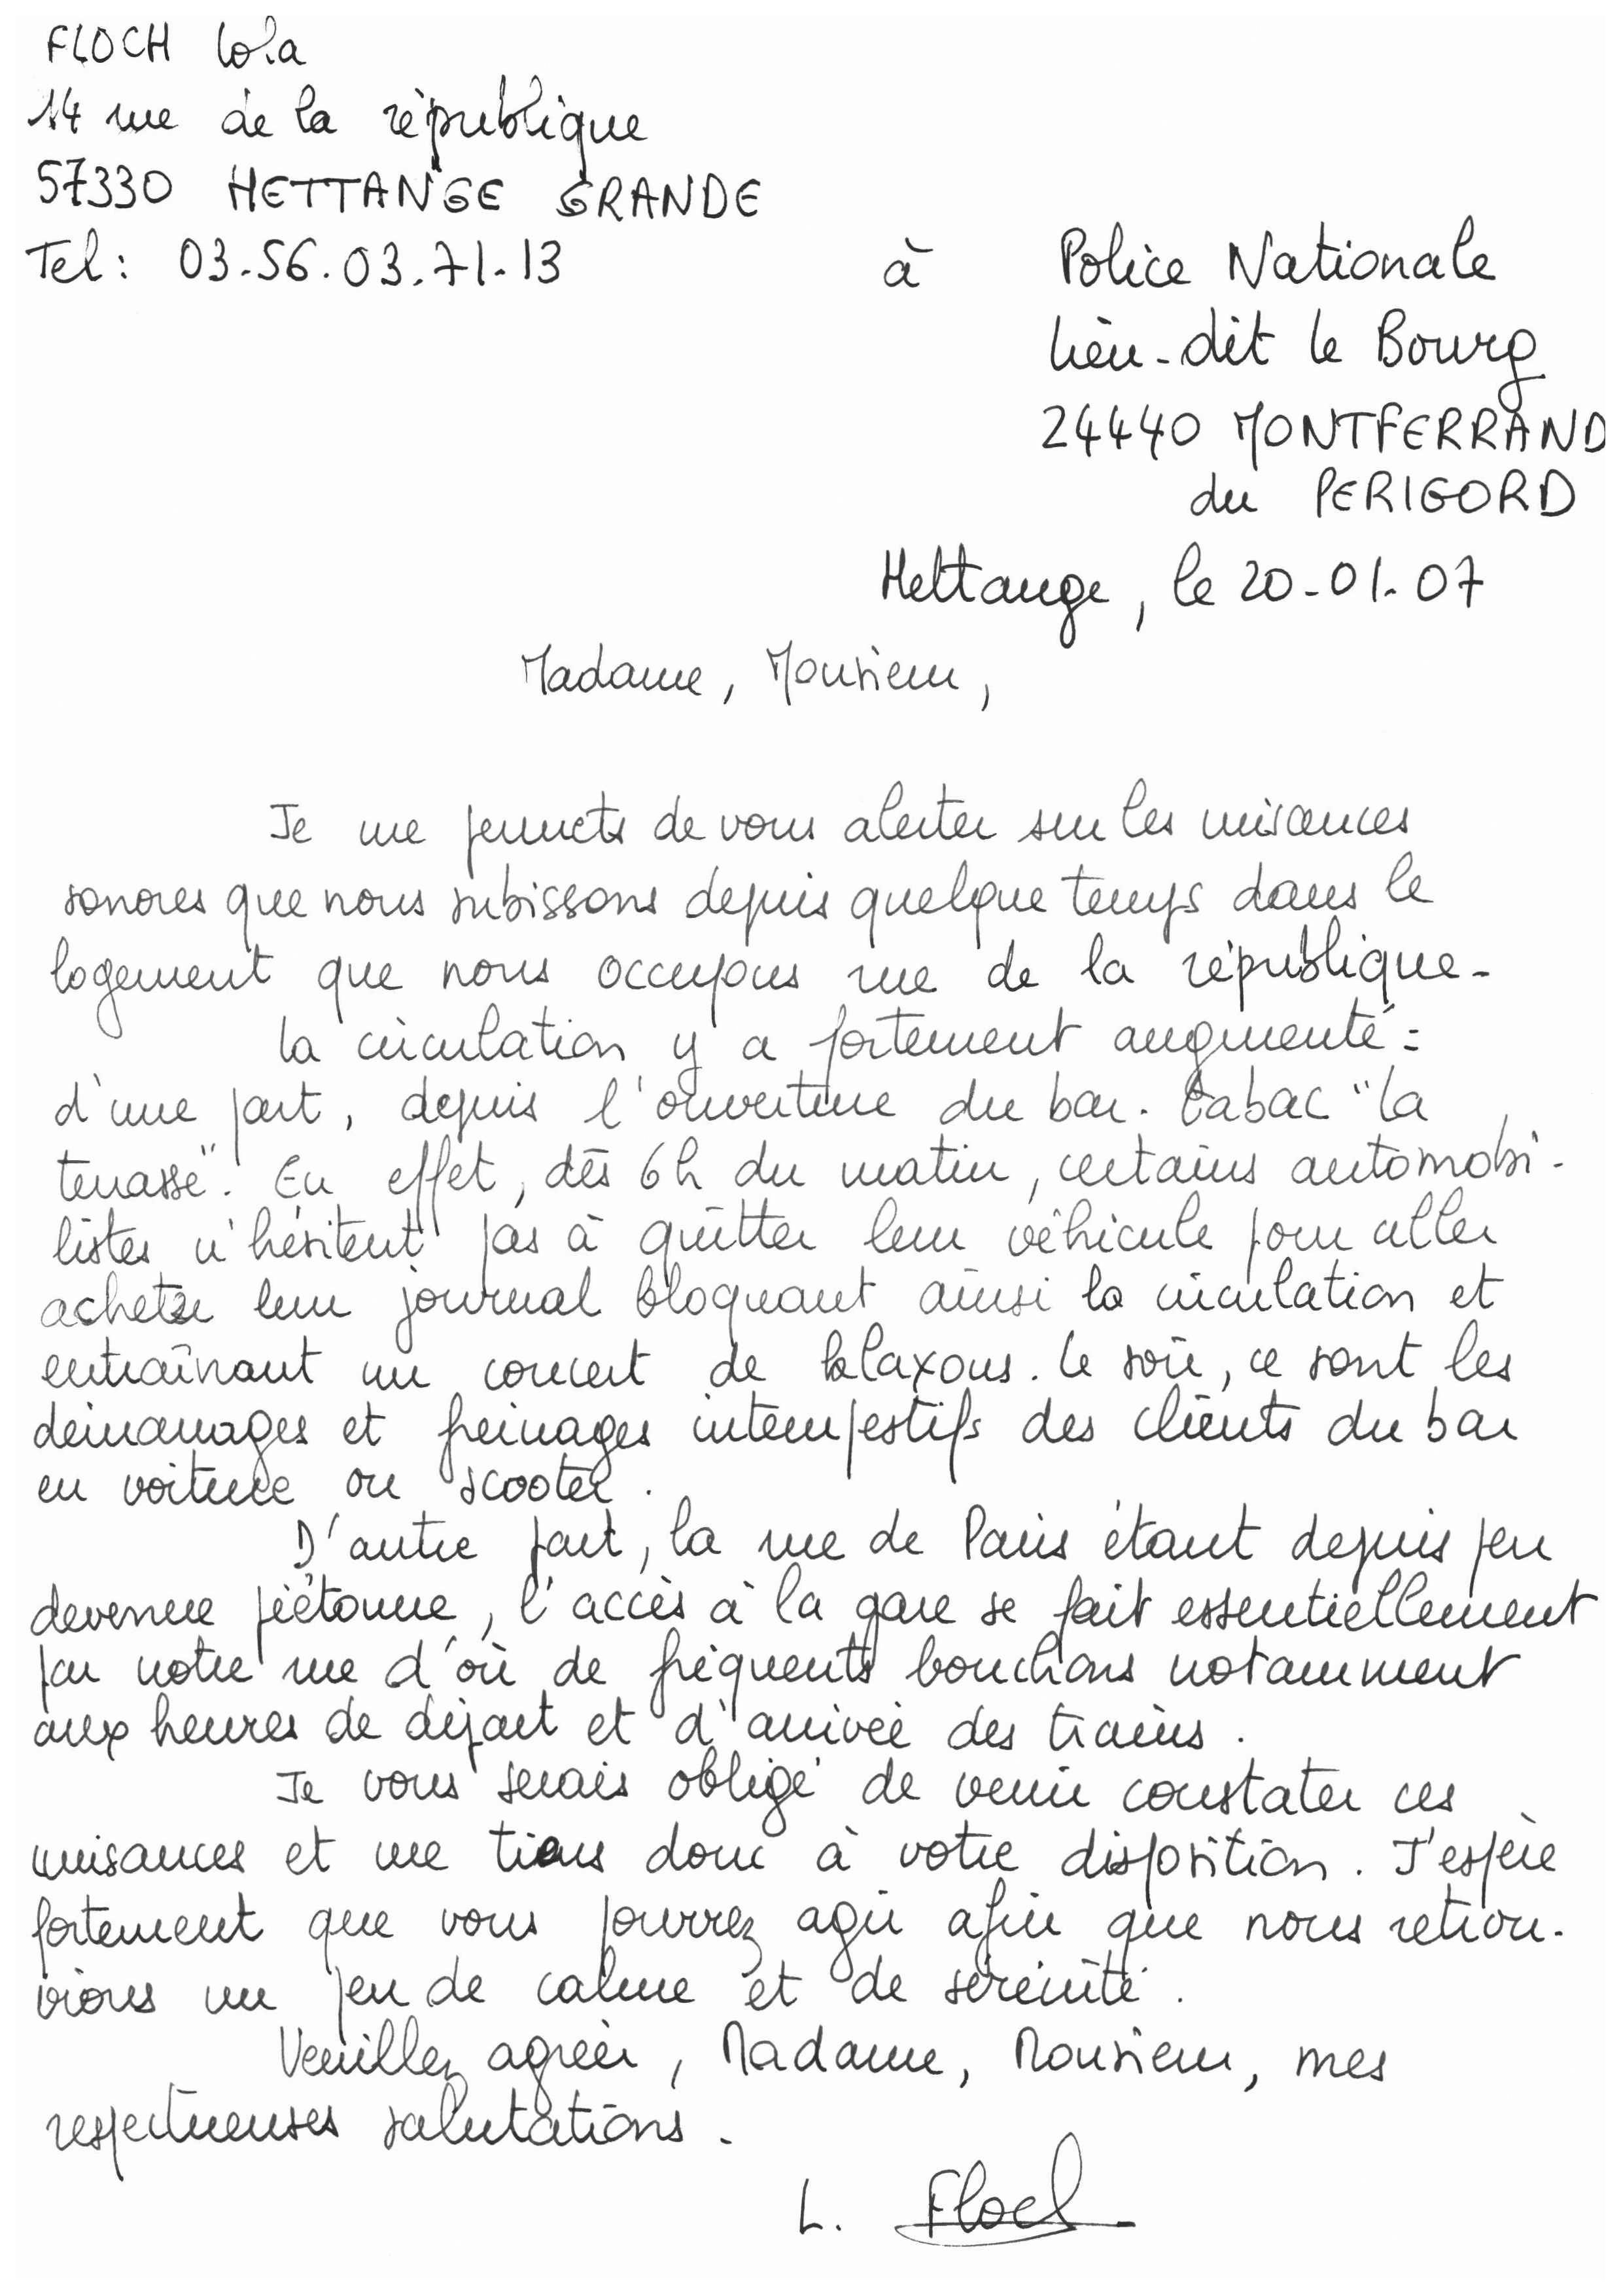 FLOCH Lola
14 rue de la république
57330 HETTANGE GRANDE
Tel : 03.56.03.71.13
à Police Nationale
lieu-dit le Bourg
24440 MONTFERRAND
du PERIGORD
Hettange, le 20-01-07
Madame, Monsieur,
Je me permets de vous alerter sur les nuisances
sonores que nous subissons depuis quelque temps dans le
logement que nous occupons rue de la république.
La circulation y a fortement augmenté :
d'une part, depuis l'ouverture du bar-tabac "la
terrasse". En effet, dès 6h du matin, certains automobi-
listes n'hésitent pas à quitter leur véhicule pour aller
acheter leur journal bloquant ainsi la circulation et
entraînant un concert de klaxons. Le soir, ce sont les
démarrages et freinages intempestifs des clients du bar
en voiture ou scooter.
D'autre part, la rue de Paris étant depuis peu
devenue piétonne, l'accès à la gare se fait essentiellement
par notre rue d'où de fréquents bouchons notamment
aux heures de départ et d'arrivée des trains.
Je vous serais obligé de venir constater ces
nuisances et me tiens donc à votre disposition. J'espère
fortement que vous pourrez agir afin que nous retrou-
vions un peu de calme et de sérénité.
Veuillez agréer, Madame, Monsieur, mes
respectueuses salutations.
L. Floch